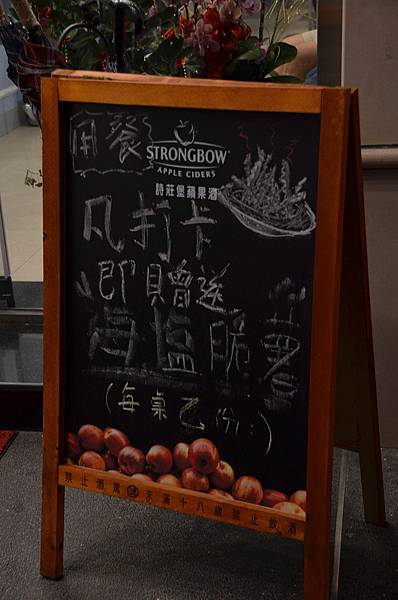 用餐
STRONGBOW
APPLE CIDERS
詩莊堡蘋果酒
凡打卡
即貝曾送
海塩脆薯
(每桌乙份:)
禁止酒駕 未滿十八歲禁止飲酒